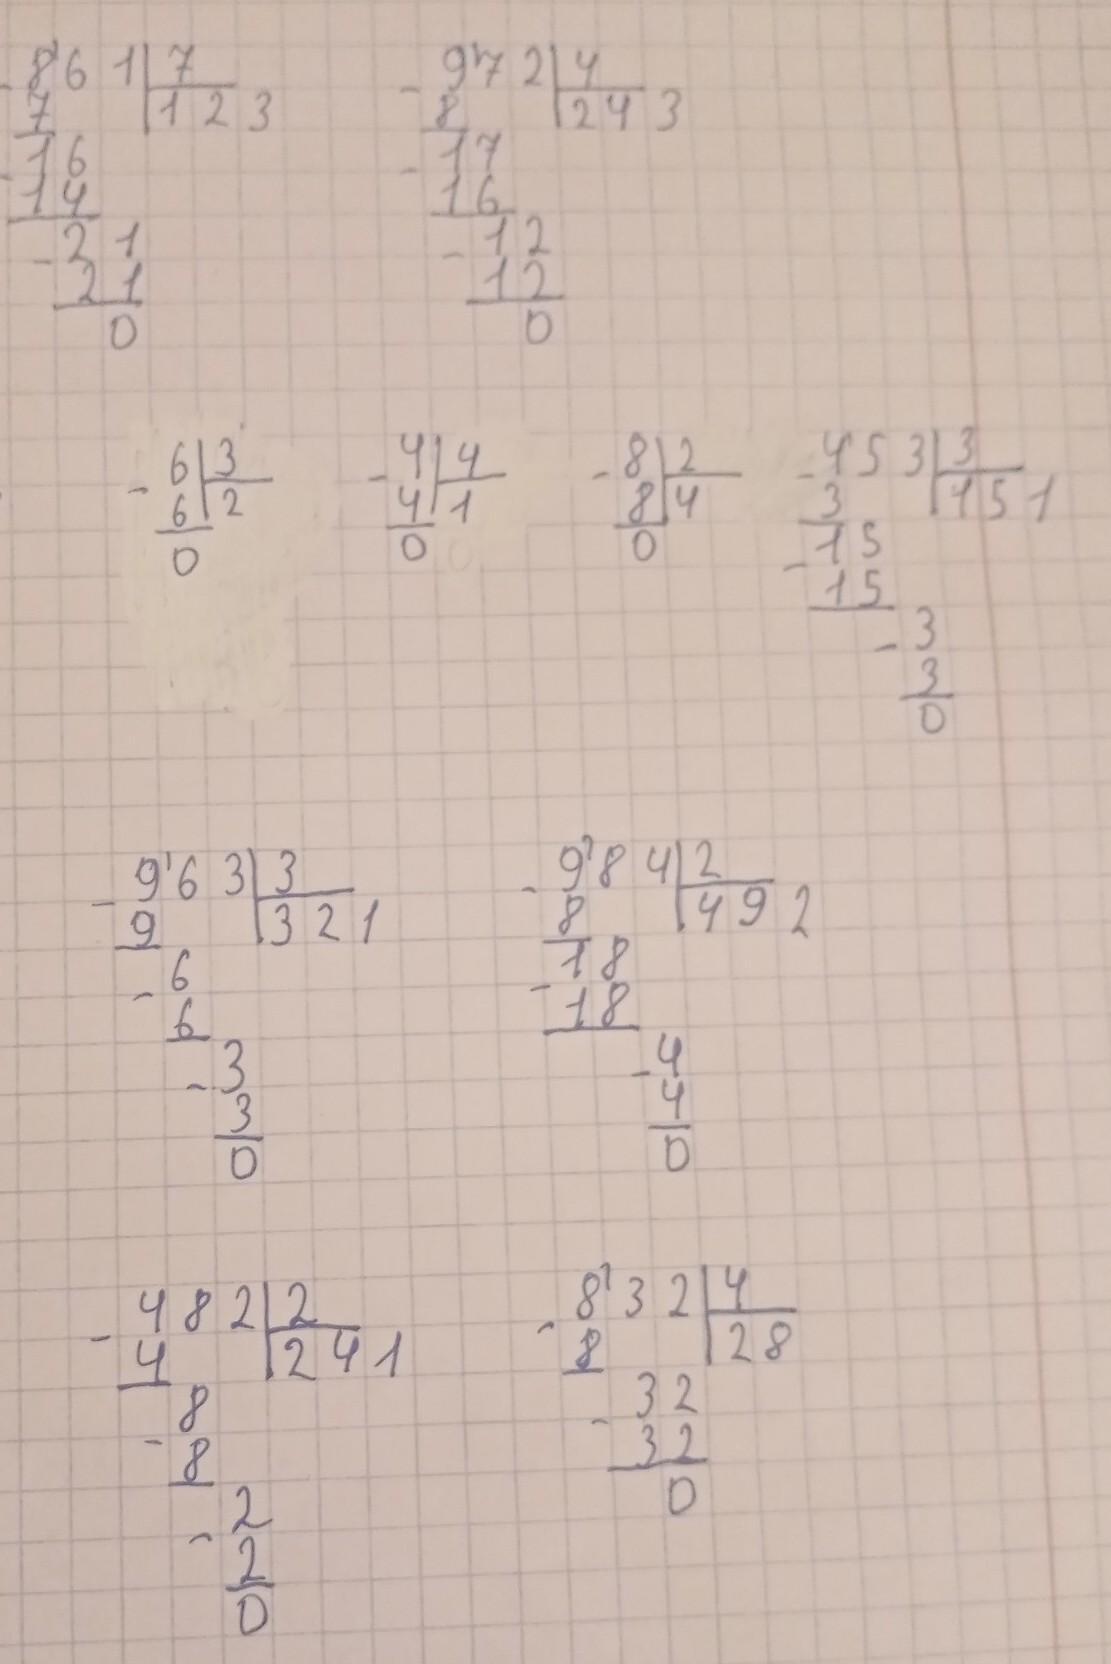 - 8'6 1 | 7
7 | 1 2 3
- 1 6
1 4
- 2 1
2 1
0
- 9'7 2 | 4
8 | 2 4 3
- 1 7
1 6
- 1 2
1 2
0
- 6 | 3
6 | 2
0
- 4 | 4
4 | 1
0
- 8 | 2
8 | 4
0
- 4'5 3 | 3
3 | 1 5 1
- 1 5
1 5
- 3
3
0
- 9'6 3 | 3
9 | 3 2 1
- 6
6
- 3
3
0
- 9'8 4 | 2
8 | 4 9 2
- 1 8
1 8
- 4
4
0
- 4 8 2 | 2
4 | 2 4 1
- 8
8
- 2
2
0
- 8'3 2 | 4
8 | 2 8
- 3 2
3 2
0